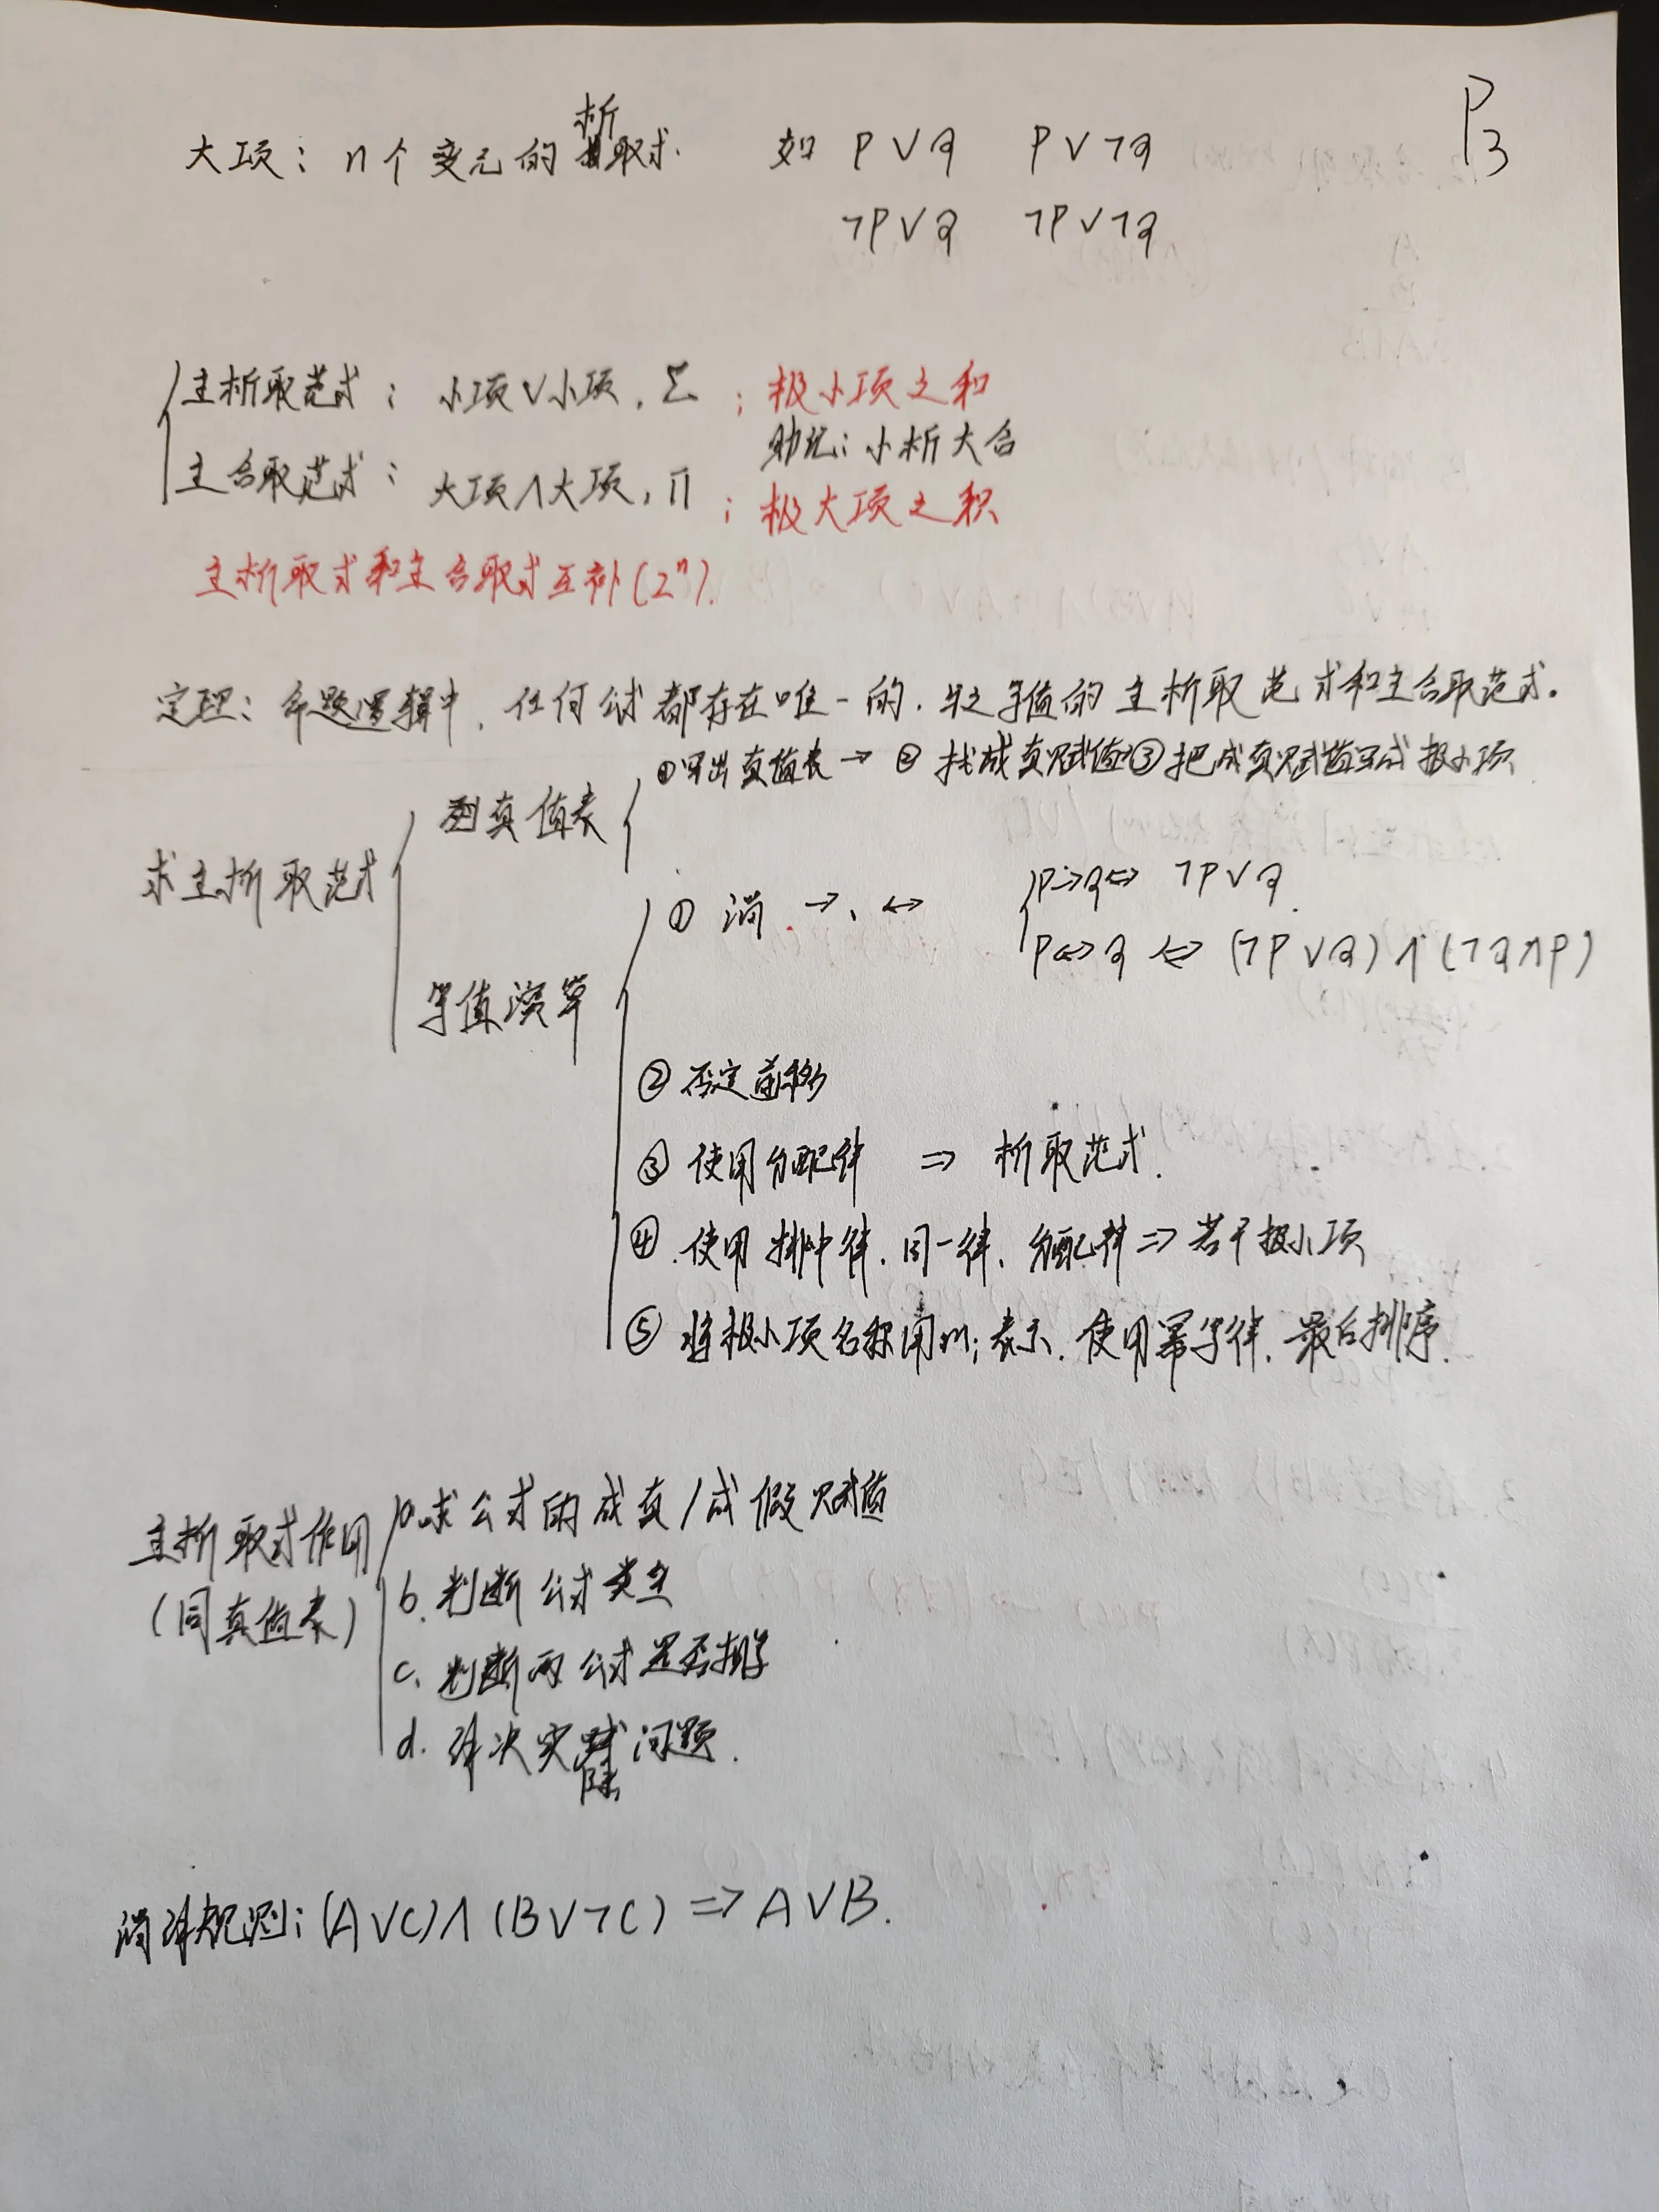 P3
大项：n个变元的析取式. 如 P∨Q P∨¬Q
¬P∨Q ¬P∨¬Q
主析取范式：小项∨小项，Σ；极小项之和
助记：小析大合
主合取范式：大项∧大项，Π；极大项之积
主析取式和主合取式互补(2ⁿ).
定理：命题逻辑中，任何公式都存在唯一的，与之等值的主析取范式和主合取范式.
求主析取范式
列真值表
①写出真值表→②找成真赋值③把成真赋值写成极小项
等值演算
①消→、↔ P→Q⇔¬P∨Q.
P↔Q⇔(¬P∨Q)∧(¬Q∧P)
②否定前移
③使用分配律 ⇒ 析取范式.
④.使用排中律.同一律、分配律⇒若干极小项
⑤将极小项名称用mi表示.使用幂等律.最后排序.
主析取式作用
(同真值表)
a.求公式的成真/成假赋值
b.判断公式类型
c.判断两公式是否
d.解决实际问题.
消解规则：(A∨C)∧(B∨¬C)⇒A∨B.